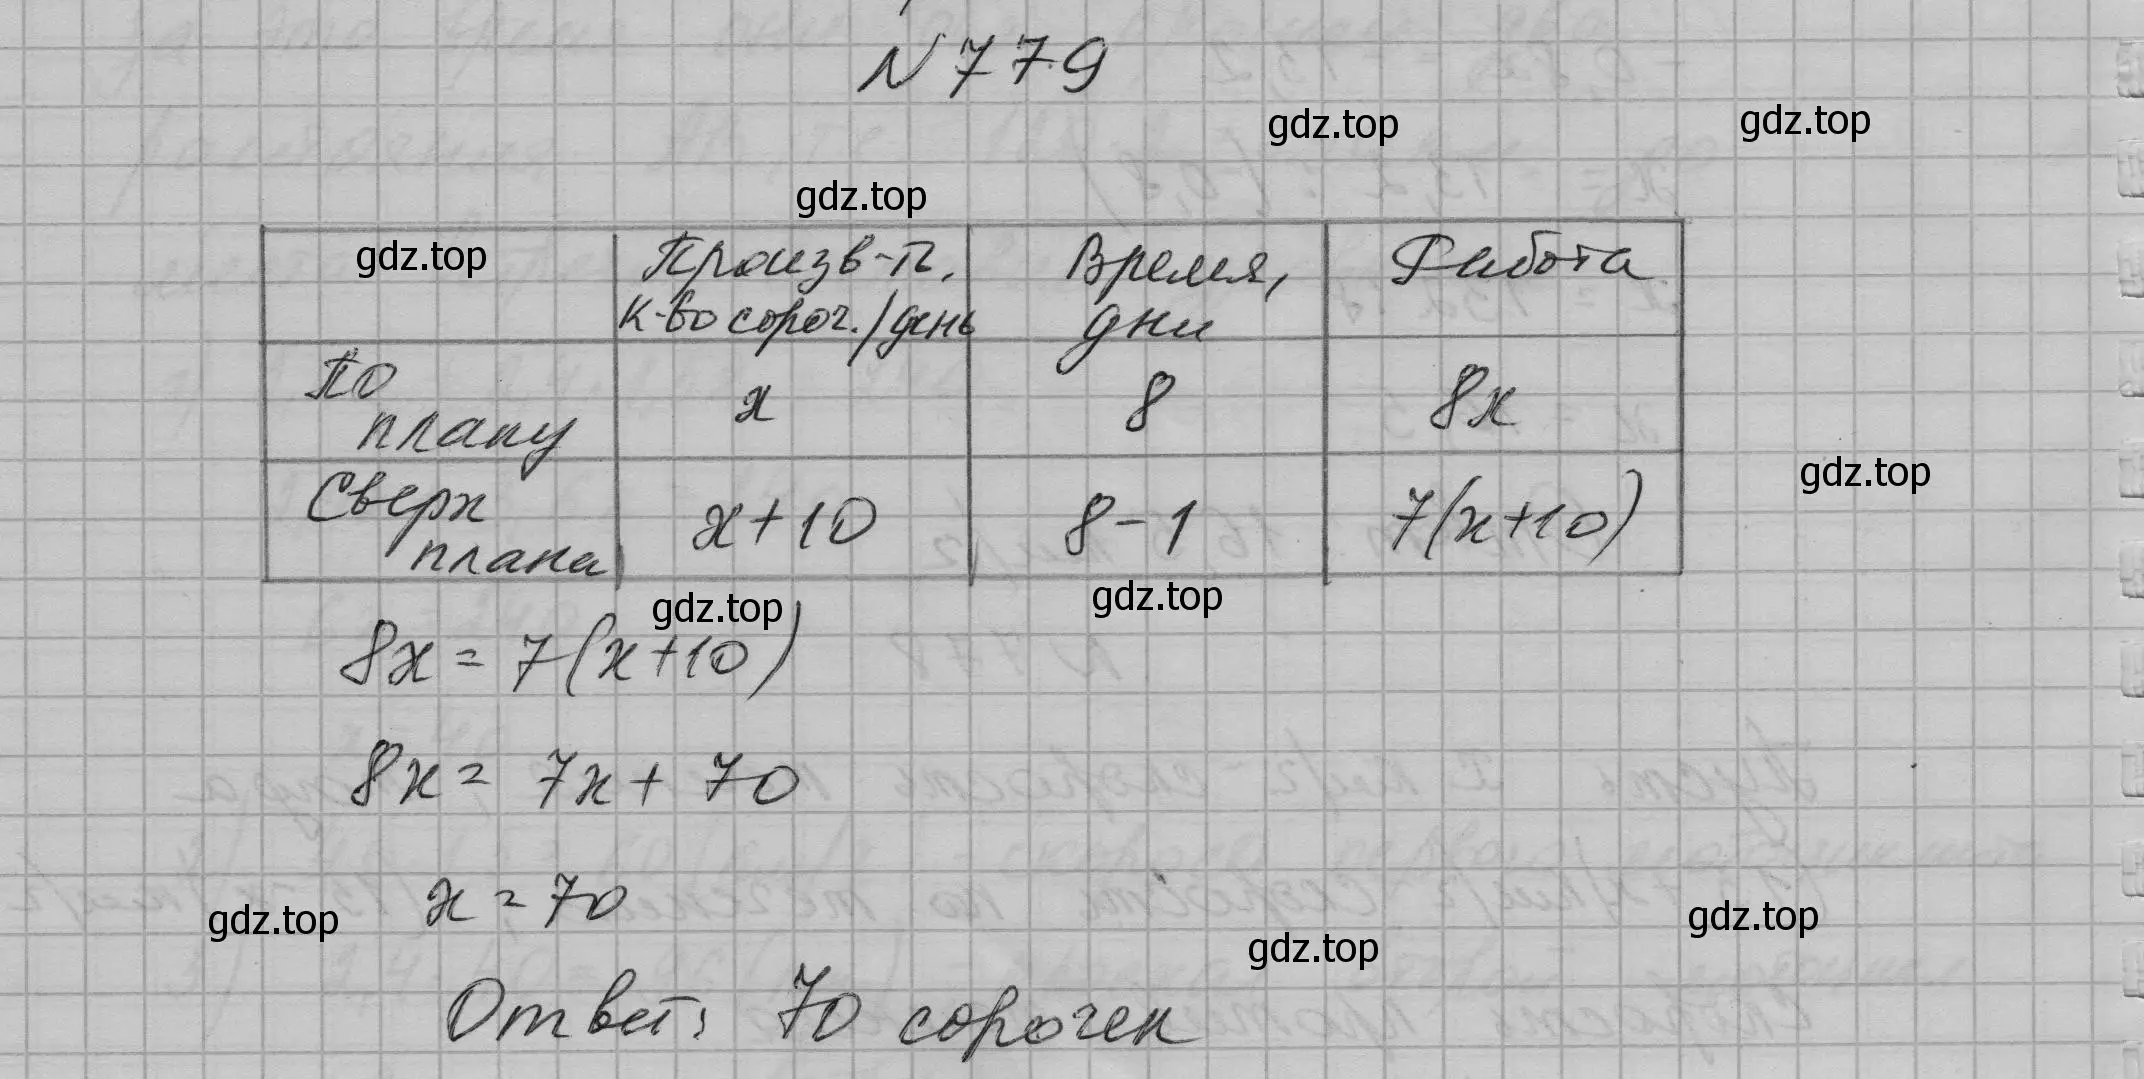 N 779
gdz.top
gdz.top
gdz.top
gdz.top
Произв-ть,
к-во сороч./день
Время,
дни
Работа
По
плану
x
8
8x
Сверх
плана
x+10
8-1
7(x+10)
gdz.top
gdz.top
gdz.top
8x = 7(x+10)
8x = 7x + 70
x = 70
gdz.top
gdz.top
gdz.top
Ответ: 70 сорочек